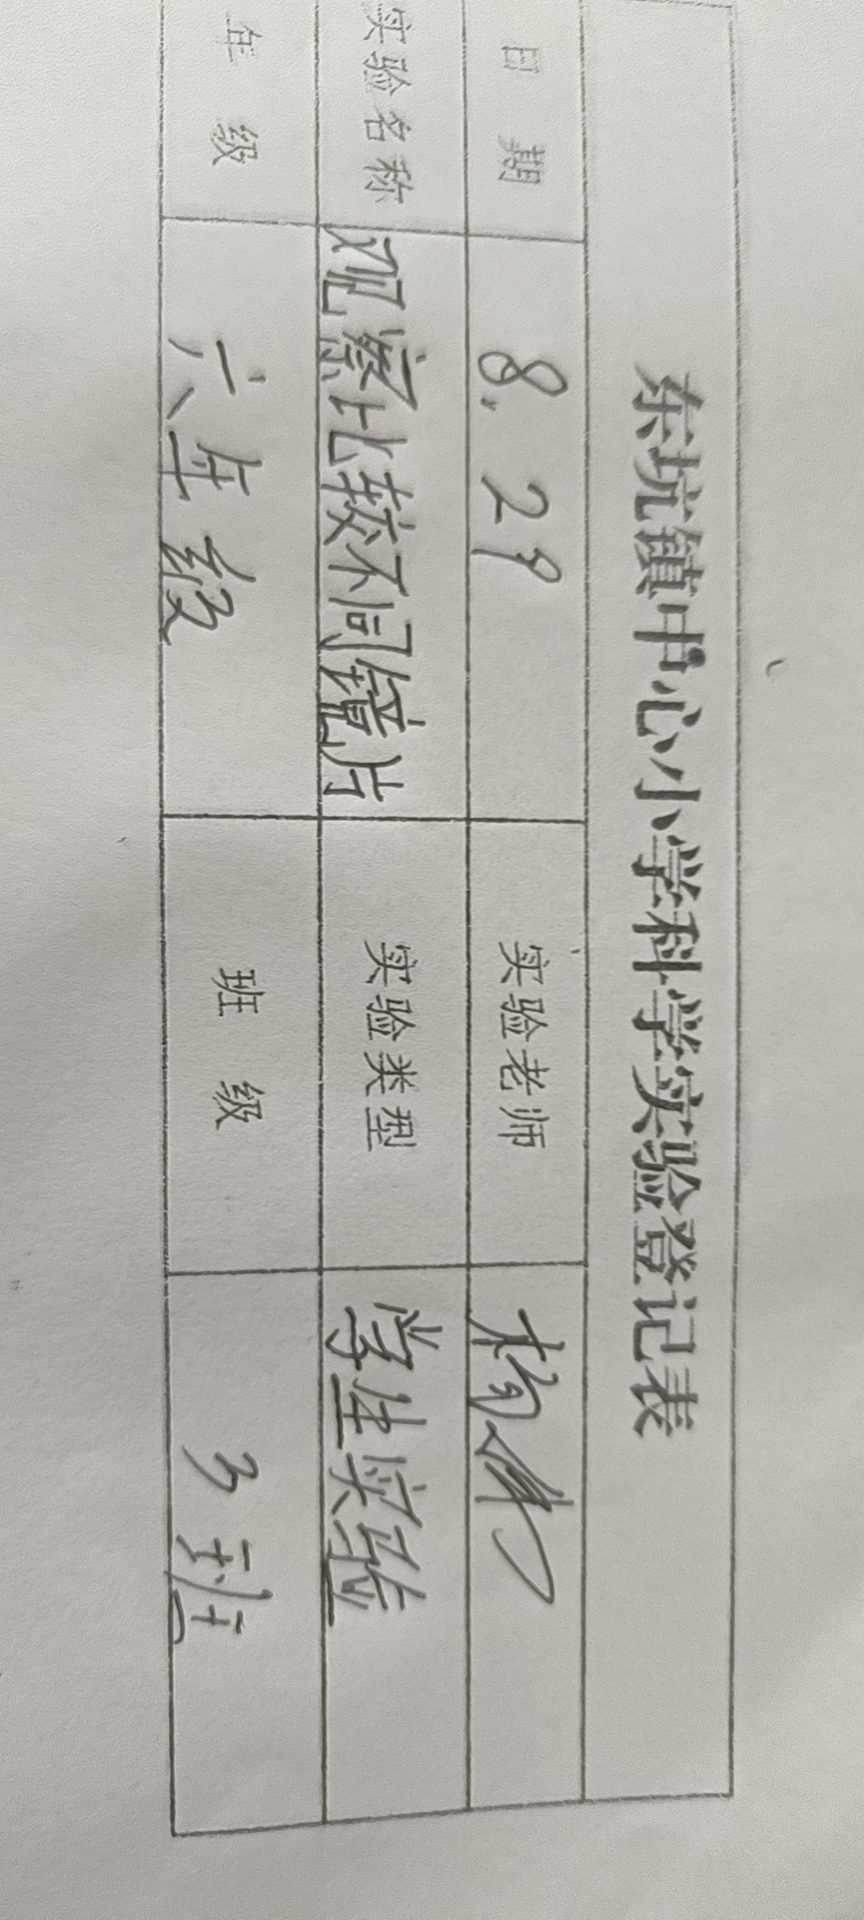 东坑镇中心小学科学实验登记表
日期 8.29 实验老师 杨
实验名称 观察比较不同镜片 实验类型 学生实验
年级 六年级 班级 3班